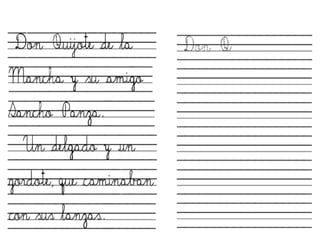 Don Quijote de la
Mancha y su amigo
Sancho Panza.
Un delgado y un
gordote, que caminaban
con sus lanzas.
Don Q